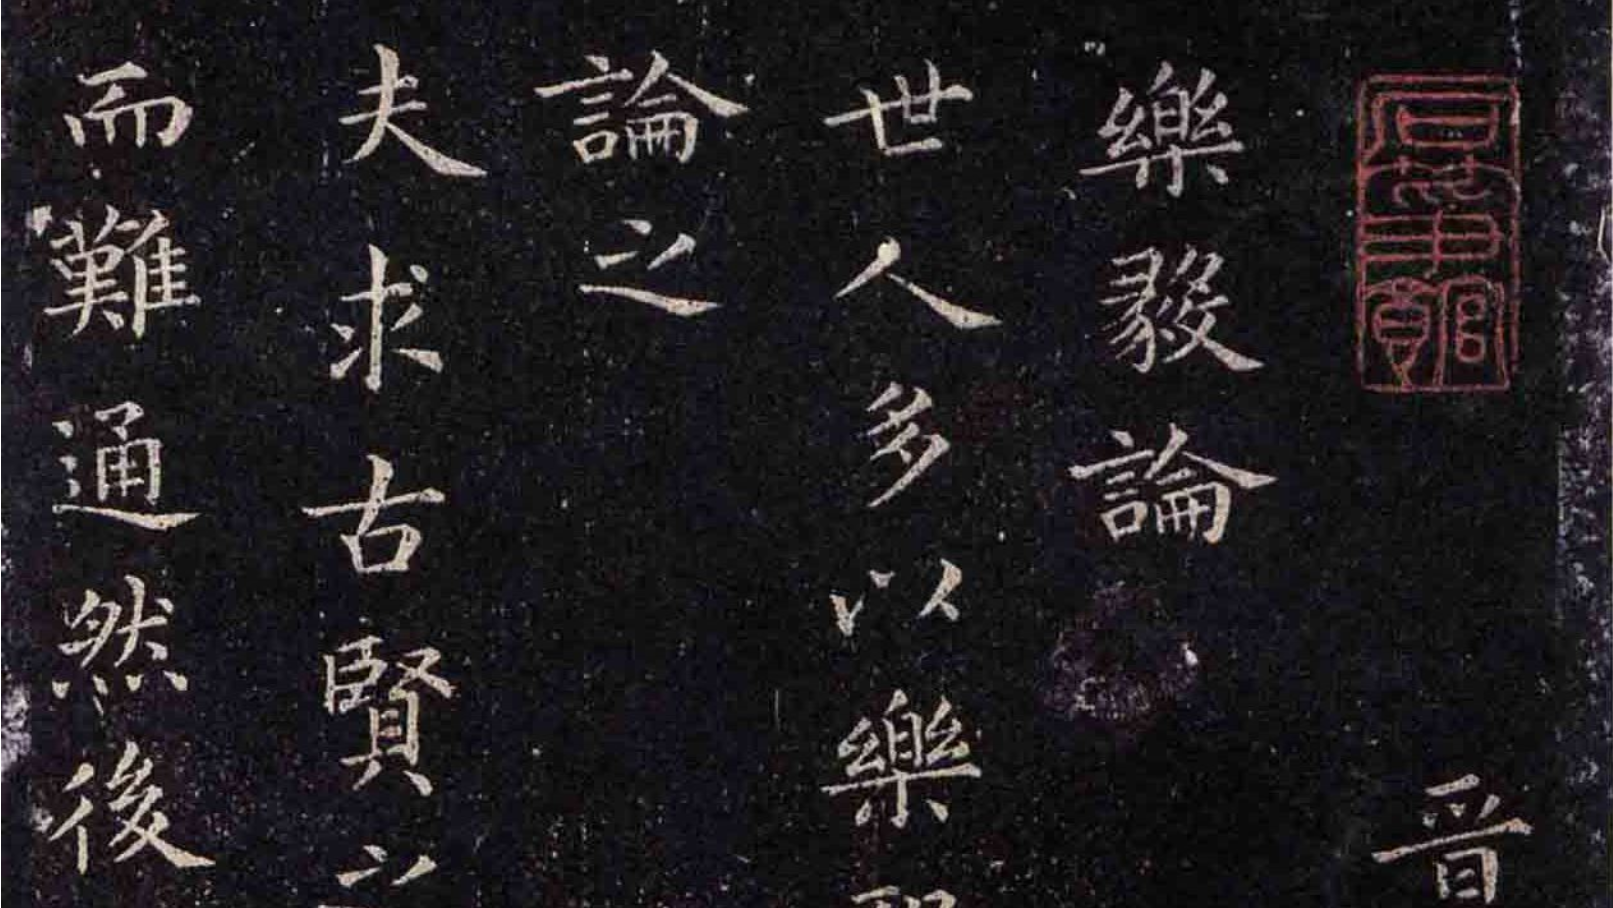 晉
樂毅論
世人多以樂
論之
夫求古賢之
而難通然後